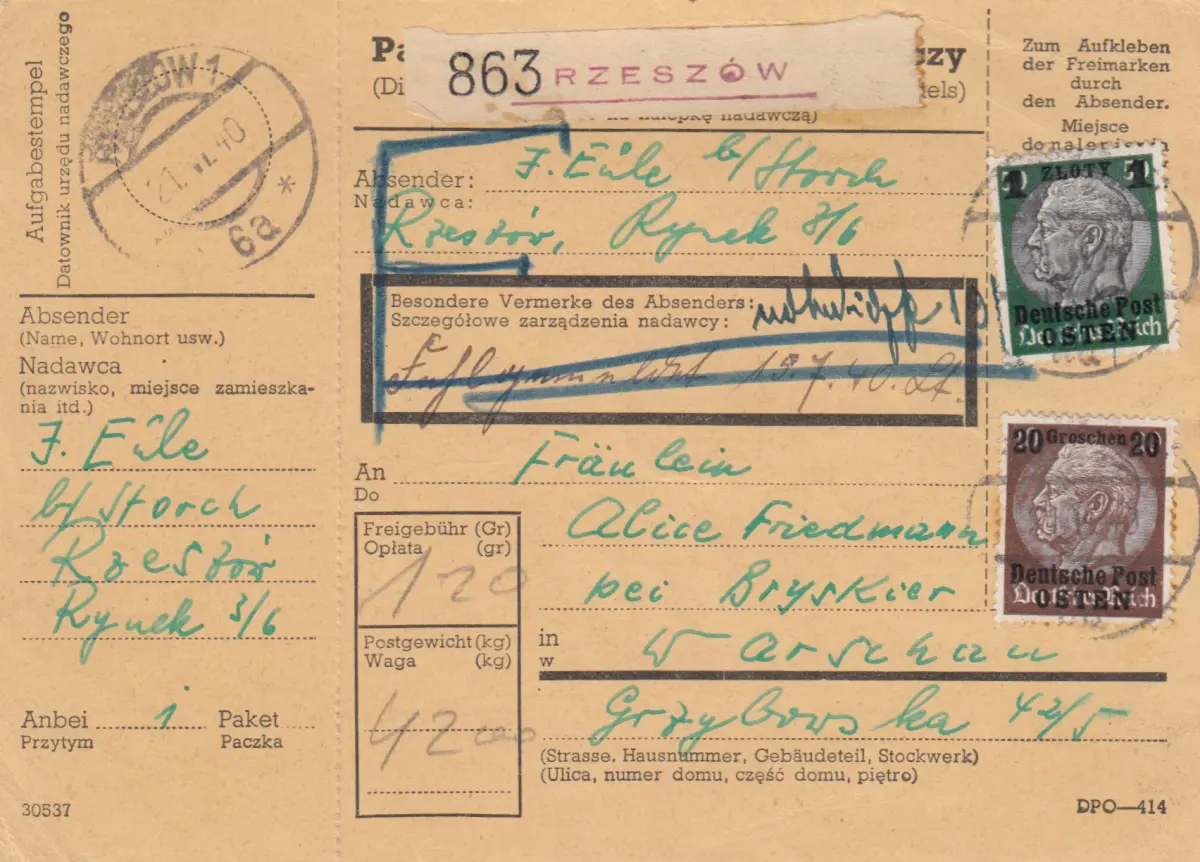 Aufgabestempel
Datownik urzędu nadawczego
RZESZOW 1
21. VI. 40
6a
*
Absender
(Name, Wohnort usw.)
Nadawca
(nazwisko, miejsce zamieszka-
nia itd.)
J. Eüle
b/ Storch
Rzeszów
Rynek 3/6
Anbei 1 Paket
Przytym Paczka
30537
863 RZESZÓW
Pa czy
(Di tels)
nadawczą)
Absender: J. Eüle b/ Storch
Nadawca:
Rzeszów, Rynek 3/6
Besondere Vermerke des Absenders:
Szczegółowe zarządzenia nadawcy:
15.7.40.
An Fräulein
Do
Alice Friedmann
bei Bryskier
in Warschau
w
Grzybowska 42/5
(Strasse, Hausnummer, Gebäudeteil, Stockwerk)
(Ulica, numer domu, część domu, piętro)
Freigebühr (Gr)
Opłata (gr)
120
Postgewicht (kg)
Waga (kg)
4200
Zum Aufkleben
der Freimarken
durch
den Absender.
Miejsce
1 ZŁOTY 1
Deutsche Post
OSTEN
Deutsches Reich
20 Groschen 20
Deutsche Post
OSTEN
Deutsches Reich
DPO—414